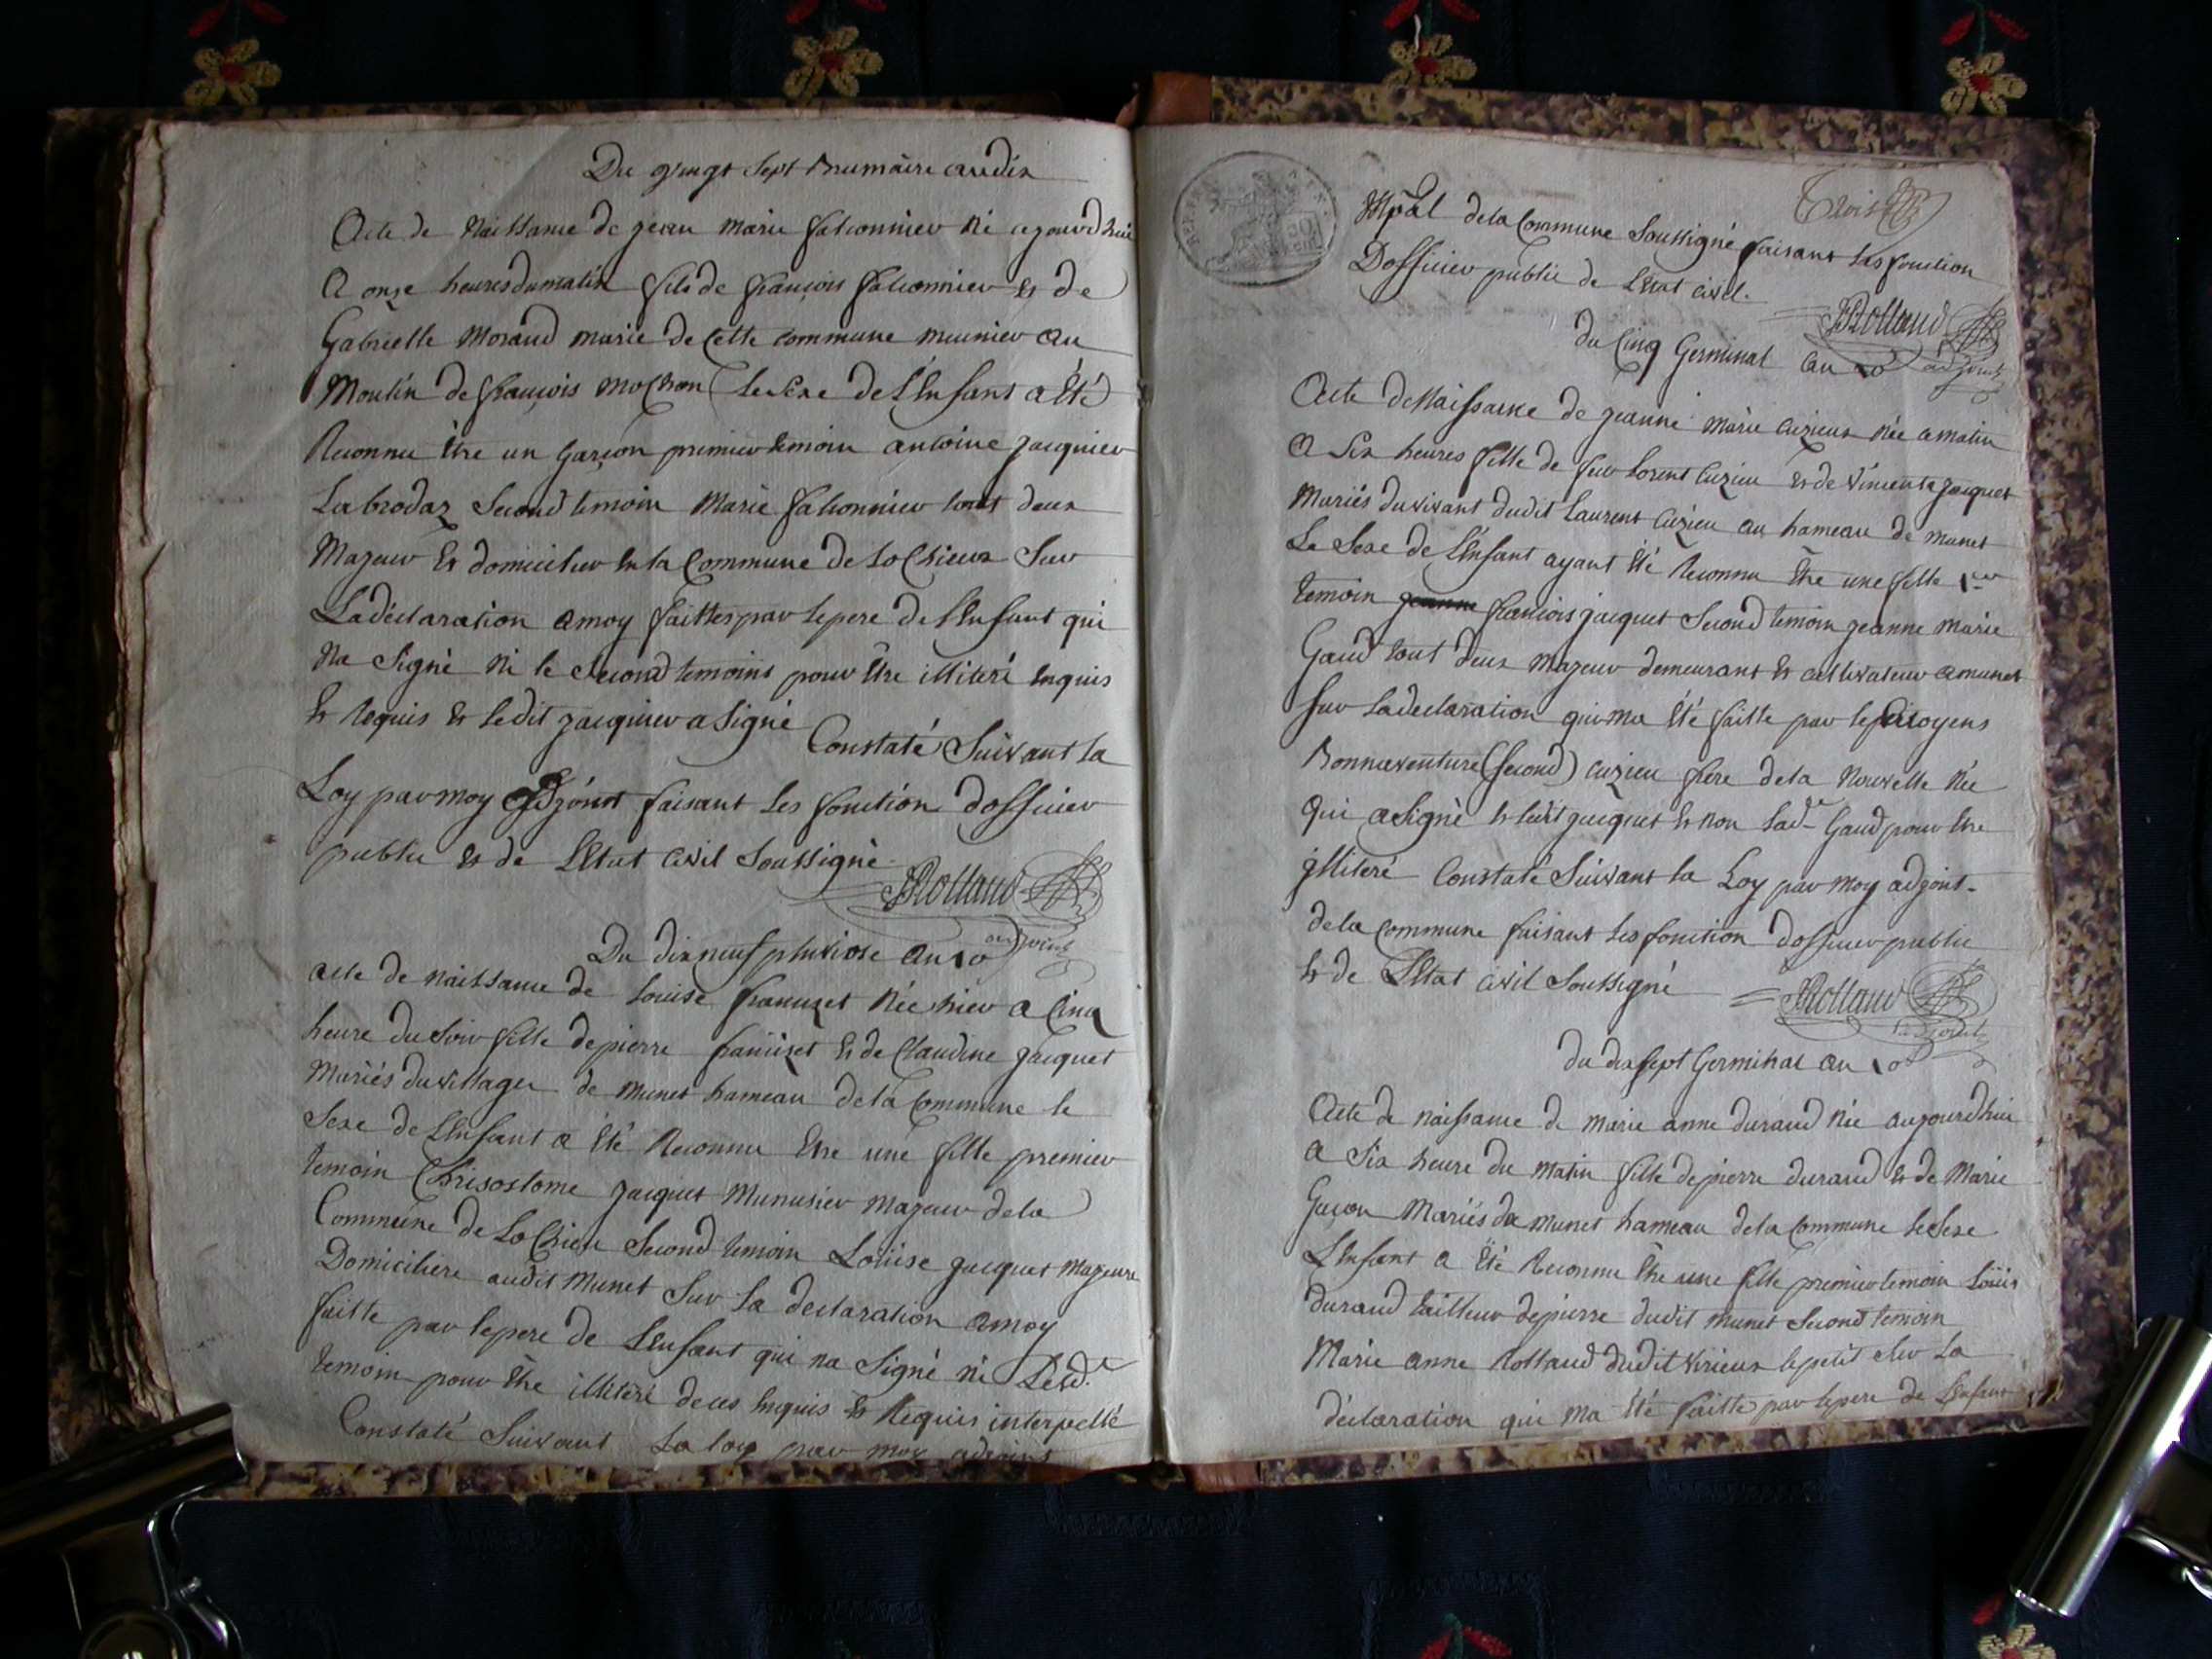 Du vingt sept Brumaire an dix
Acte de Naissance de jean marie falconnier né ajourdhui
A onze heures du matin fils de françois falconnier & de
Gabrielle Moraud marié de Cette commune meunier au
Moulin de françois mochon le sexe de L'Enfant a Eté
Reconnu être un garçon premier temoin antoine jacquier
Second temoin Marie falconnier tout deux
Majeur & domicilier en la Commune de Lochieux Sur
La déclaration a moy faittes par le pere de L'Enfant qui
Na Signé ni le Second temoins pour Etre illiteré Enquis
& Requis & ledit jacquier a Signé Constaté Suivant la
Loy par moy adjoint faisant les fonction dofficier
public & de L'Etat civil Soussigné
JRollaud
adjoint
Du dix neuf pluviose an 10
acte de naissance de Louise francuzet Née hier a Cinq
heure du soir fille de pierre & de Claudine jacquet
Mariés du village de munet hameau de la Commune le
Sexe de L'Enfant a Eté Reconnu Etre une fille premier
temoin Chrisostome jacquet Menusier majeur de la
Commune de Lochieu Second temoin Louise jacquet Majeure
Domiciliere audit Munet Sur la declaration a moy
faitte par le pere de L'Enfant qui na Signé ni Lesd.t
temoin pour Etre illiteré de ces Enquis & Requis interpellé
Constaté Suivant la loy par moy adjoint
Trois
Mpal de la Commune Soussigné faisant les fonction
Dofficier public de L'Etat civil.
JRollaud
adjoint
du Cinq Germinal an 10
Acte de Naissance de jeanne marie cuzieux née a matin
A Six heures fille de feu Lorent Cuzieu & de Vincente jacquet
Mariés du vivant dudit Laurent Cuzieu au hameau de munet
Le Sexe de L'Enfant ayant Eté Reconnu Etre une fille 1.er
temoin jeanne francois jacquet Second temoin jeanne marie
Gaud tout deux Majeur demeurant & cultivateur a munet
Sur la declaration qui ma Eté faitte par le Citoyens
Bonnaventure (second) cuzieu frere de la Nouvelle Née
Qui a Signé & ledit jacquet & non lad.e Gaud pour Etre
illiteré Constaté Suivant la Loy par moy adjoint
de la Commune faisant les fonction dofficier public
& de L'Etat civil Soussigné JRollaud
adjoint
du dix sept Germinal an 10
Acte de naissance de marie anne duraud née aujourdhui
a Six heure du matin fille de pierre duraud & de Marie
Mariés de munet hameau de la Commune le Sexe
L'Enfant a Eté Reconnu Etre une fille premier temoin Louis
duraud tailleur de pierre dudit munet Second temoin
Marie anne Rollaud dudit Virieux le petit Sur La
déclaration qui Ma Eté faitte par le pere de L'Enfant